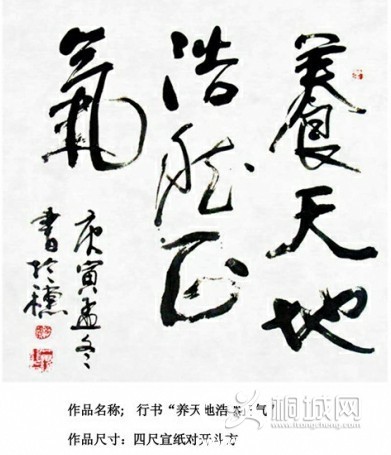 養天地
浩然正
氣
庚寅孟冬
書於穗
作品名称；行书“养天地浩然正气”
作品尺寸：四尺宣纸对开斗方
桐城网